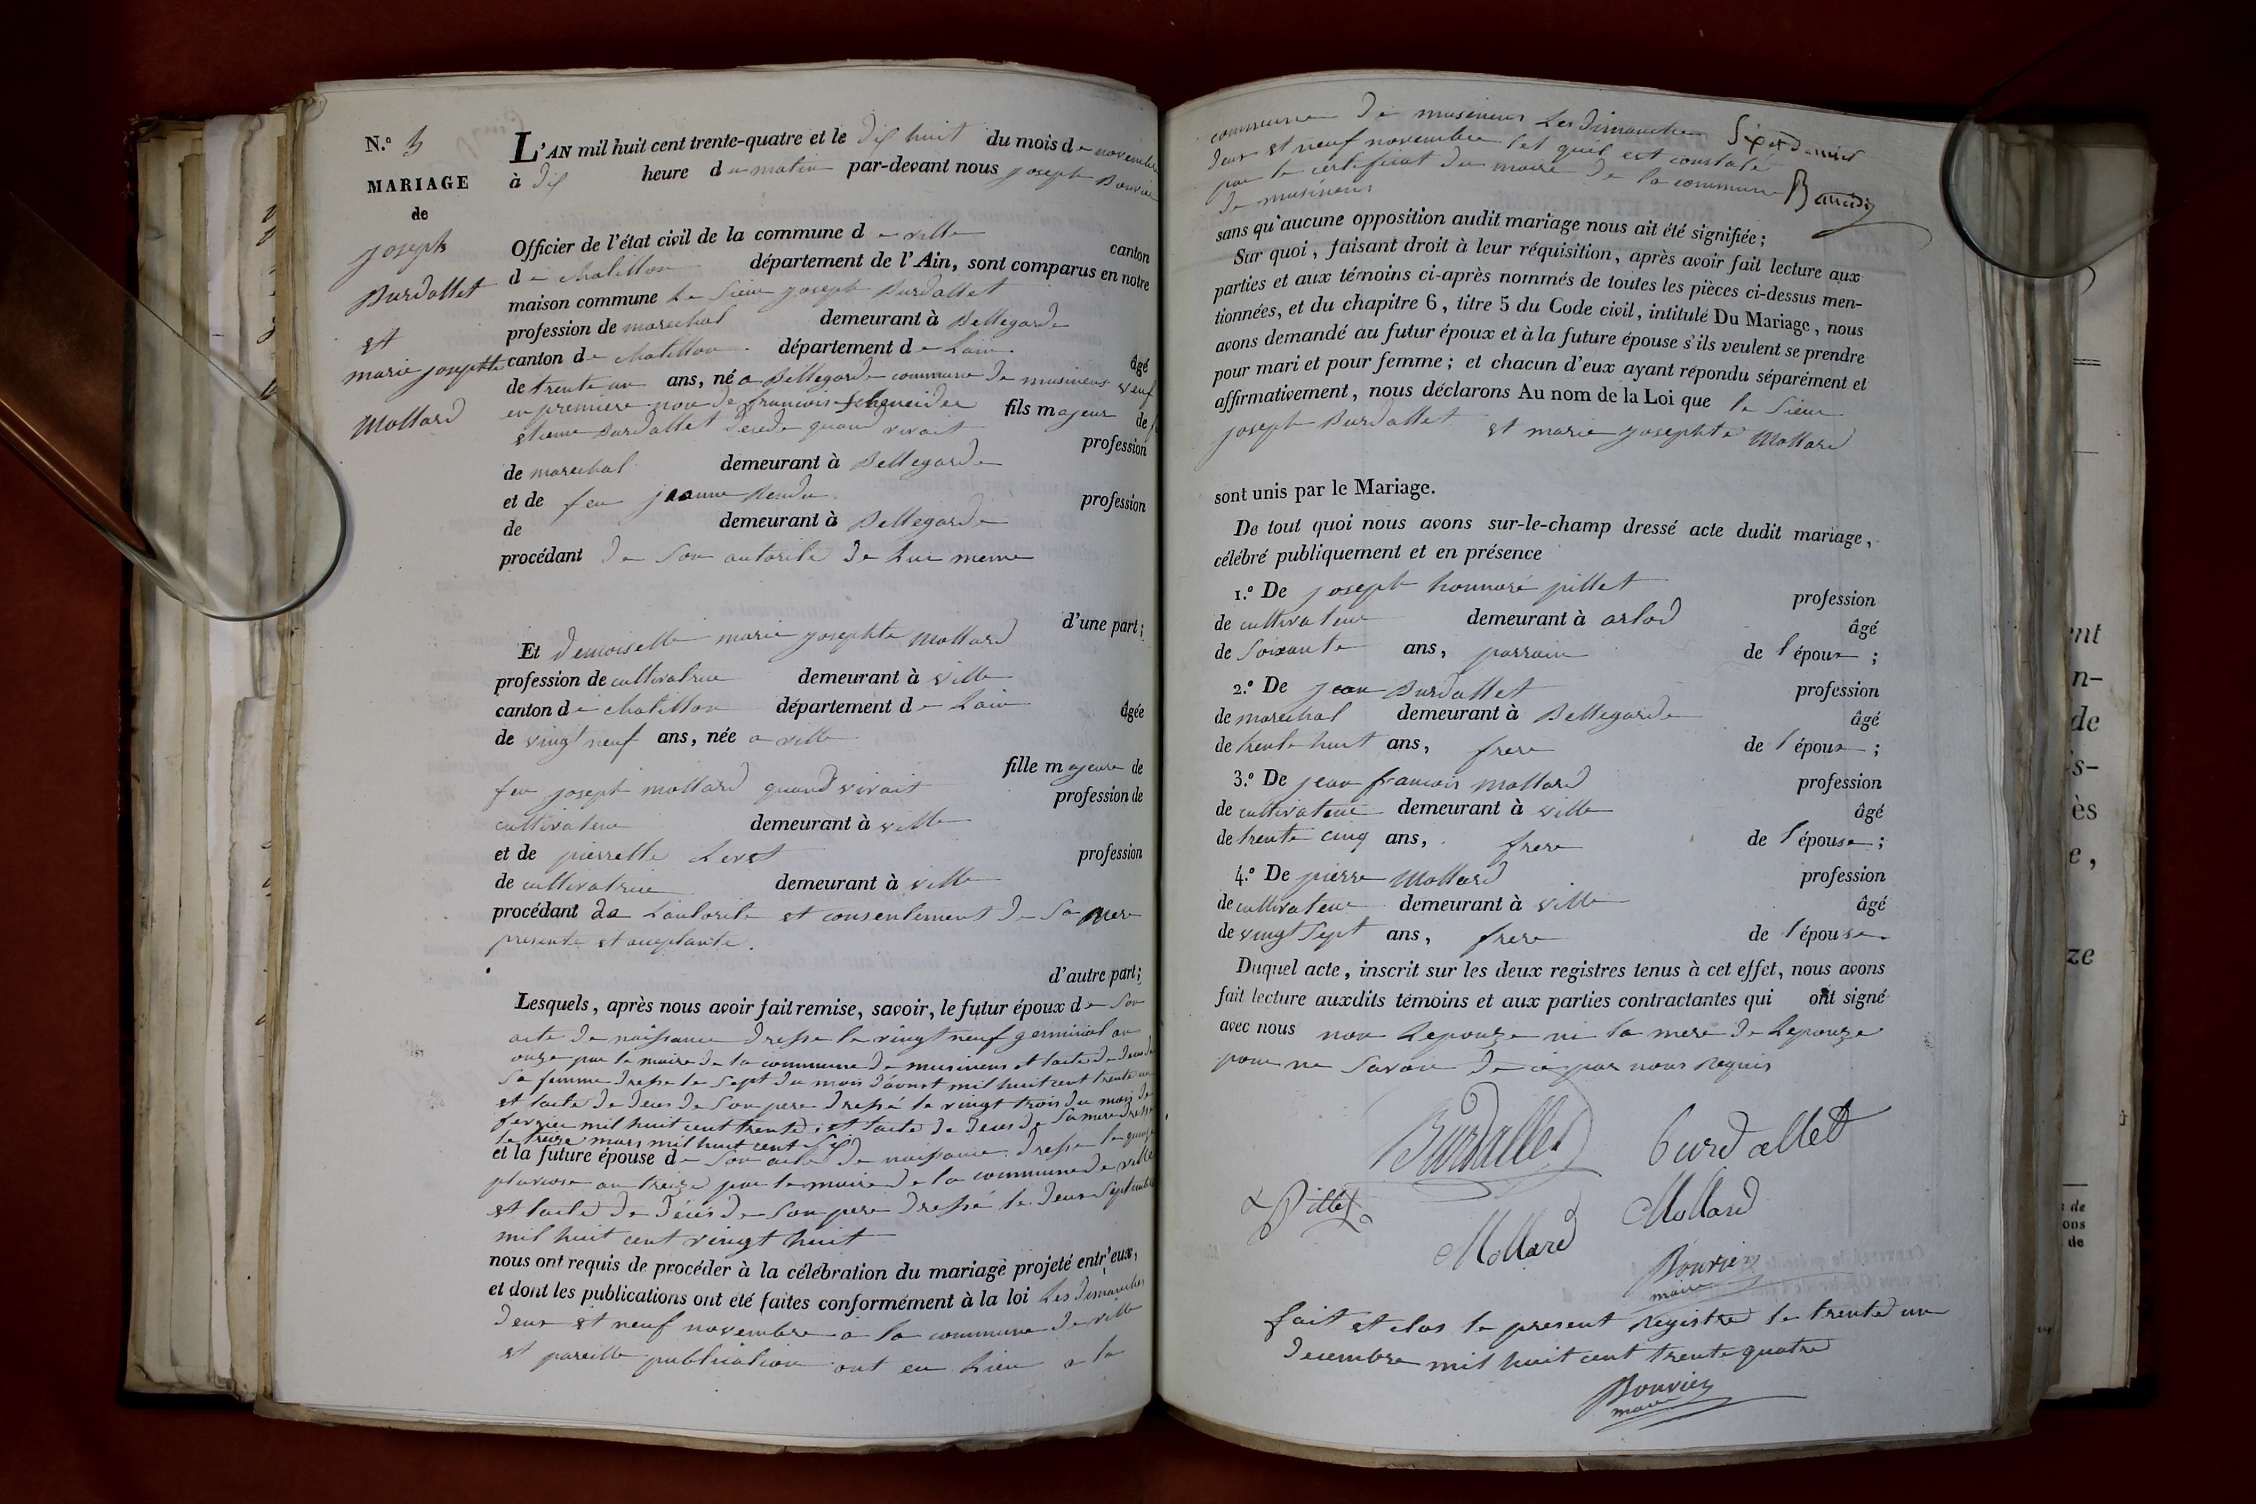 N.º 3
MARIAGE
de
joseph
Burdallet
et
marie josephte
Mollard
L'AN mil huit cent trente-quatre et le dix huit du mois de novembre
à dix heure du matin par-devant nous joseph Bouvier
Officier de l'état civil de la commune de ville canton
de chatillon département de l'Ain, sont comparus en notre
maison commune Le Sieur joseph Burdallet
profession de marechal demeurant à Bellegarde
canton de chatillon département de Lain âgé
de trente un ans, né a Bellegarde commune de musinens veuf
en premiere noce de francoise fils majeur de
etienne Burdallet decede quand vivait profession
de marechal demeurant à Bellegarde
et de feu jeanne Rendu profession
de demeurant à Bellegarde
procédant de Son autorite de Lui meme
d'une part;
Et demoiselle marie josephte Mollard
profession de cultivatrice demeurant à ville
canton de chatillon département de Lain âgée
de vingt neuf ans, née a ville
fille majeure de
feu joseph mollard quand vivait profession de
cultivateur demeurant à ville
et de pierrette profession
de cultivatrice demeurant à ville
procédant de Lautorite et consentement de Sa mere
presente et acceptante.
d'autre part;
Lesquels, après nous avoir fait remise, savoir, le futur époux de Son
acte de naissance dresse le vingt neuf germinal an
onze par le maire de la commune de musinens et lacte de deces de
Sa femme dresse le Sept du mois daoust mil huit cent trente un
et lacte de deces de Son pere dressé le vingt trois du mois de
fevrier mil huit cent trente et lacte de deces de Sa mere dresse
le treize mars mil huit cent Six
et la future épouse de Son acte de naissance dresse le quinze
pluviose an treize par le maire de la commune de ville
et lacte de décés de Son pere dressé le deux Septembre
mil huit cent vingt huit
nous ont requis de procéder à la célébration du mariage projeté entr'eux,
et dont les publications ont été faites conformément à la loi Les dimanches
deux et neuf novembre a la commune de ville
et pareille publication ont eu Lieu a la
commune de musinens Les dimanches
deux et neuf novembre tel quil est constaté
par le certificat du maire de la commune
de musinens
Six et dernier
sans qu'aucune opposition audit mariage nous ait été signifiée;
Sur quoi, faisant droit à leur réquisition, après avoir fait lecture aux
parties et aux témoins ci-après nommés de toutes les pièces ci-dessus men-
tionnées, et du chapitre 6, titre 5 du Code civil, intitulé Du Mariage, nous
avons demandé au futur époux et à la future épouse s'ils veulent se prendre
pour mari et pour femme; et chacun d'eux ayant répondu séparément et
affirmativement, nous déclarons Au nom de la Loi que le Sieur
joseph Burdallet et marie josephte Mollard
sont unis par le Mariage.
De tout quoi nous avons sur-le-champ dressé acte dudit mariage,
célébré publiquement et en présence
1.º De joseph honnoré pillet profession
de cultivateur demeurant à arlod âgé
de Soixante ans, parrain de l'époux;
2.º De jean Burdallet profession
de marechal demeurant à Bellegarde âgé
de trente huit ans, frere de l'époux;
3.º De jean francois Mollard profession
de cultivateur demeurant à ville âgé
de trente cinq ans, frere de l'épouse;
4.º De pierre Mollard profession
de cultivateur demeurant à ville âgé
de vingt Sept ans, frere de l'épouse
Duquel acte, inscrit sur les deux registres tenus à cet effet, nous avons
fait lecture auxdits témoins et aux parties contractantes qui ont signé
avec nous non Lepouze ni la mere de Lepouze
pour ne Savoir de ce par nous Requis
Burdallet burdallet
Pillet Mollard Mollard
Bouvier
maire
fait et clos le present Registre le trente un
decembre mil huit cent trente quatre
Bouvier
maire